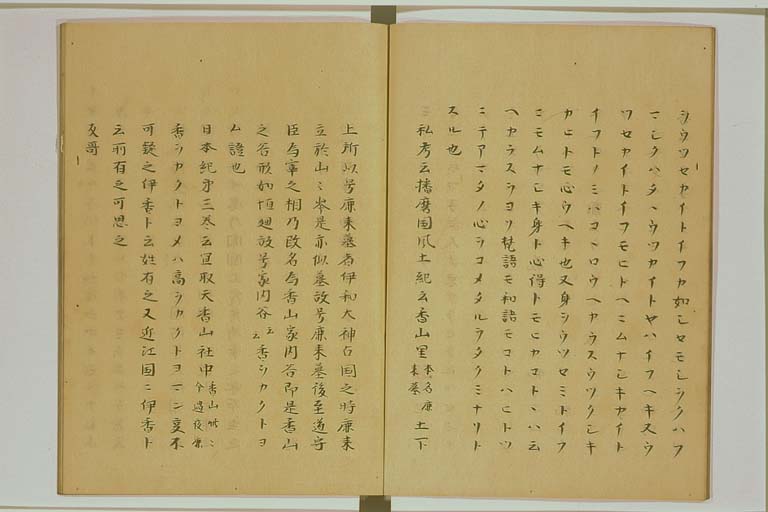 ヲウツセカイトイフカ如シセモシラクハフ
マシクハタヽウツカイトヤハイフヘキスウ
ツセカイトイフモヒトヘニムナシキカイト
イフトノミハコヽロウヘカラスウツクシキ
カヒトモ心ウヘキ也又身ヲウツセミトイフ
ニモムナシキ身ト心得トモヒカコトヽハ云
ヘカラスヲヨソ梵語モ和語モコトハヒトツ
ニテアマタノ心ヲコメタルヲタクミナリト
スル也
私考云播磨国風土紀云香山里 本名鹿来墓 土下
上所以号鹿来墓者伊和大神占国之時鹿来
立於山〻岑是亦似墓故号鹿来墓後至道守
臣為宰之相乃改名為香山家内谷即是香山
之谷形如垣廻故号家内谷云〻香ヲカクトヨ
ム證也
日本紀第三巻云宜取天香山社中 香山此云介遇夜摩
香ヲカクトヨメハ高ヲカクトヨマン支不
可疑之伊香ト云姓有之又近江国ニ伊香ト
云所有之可思之
反哥